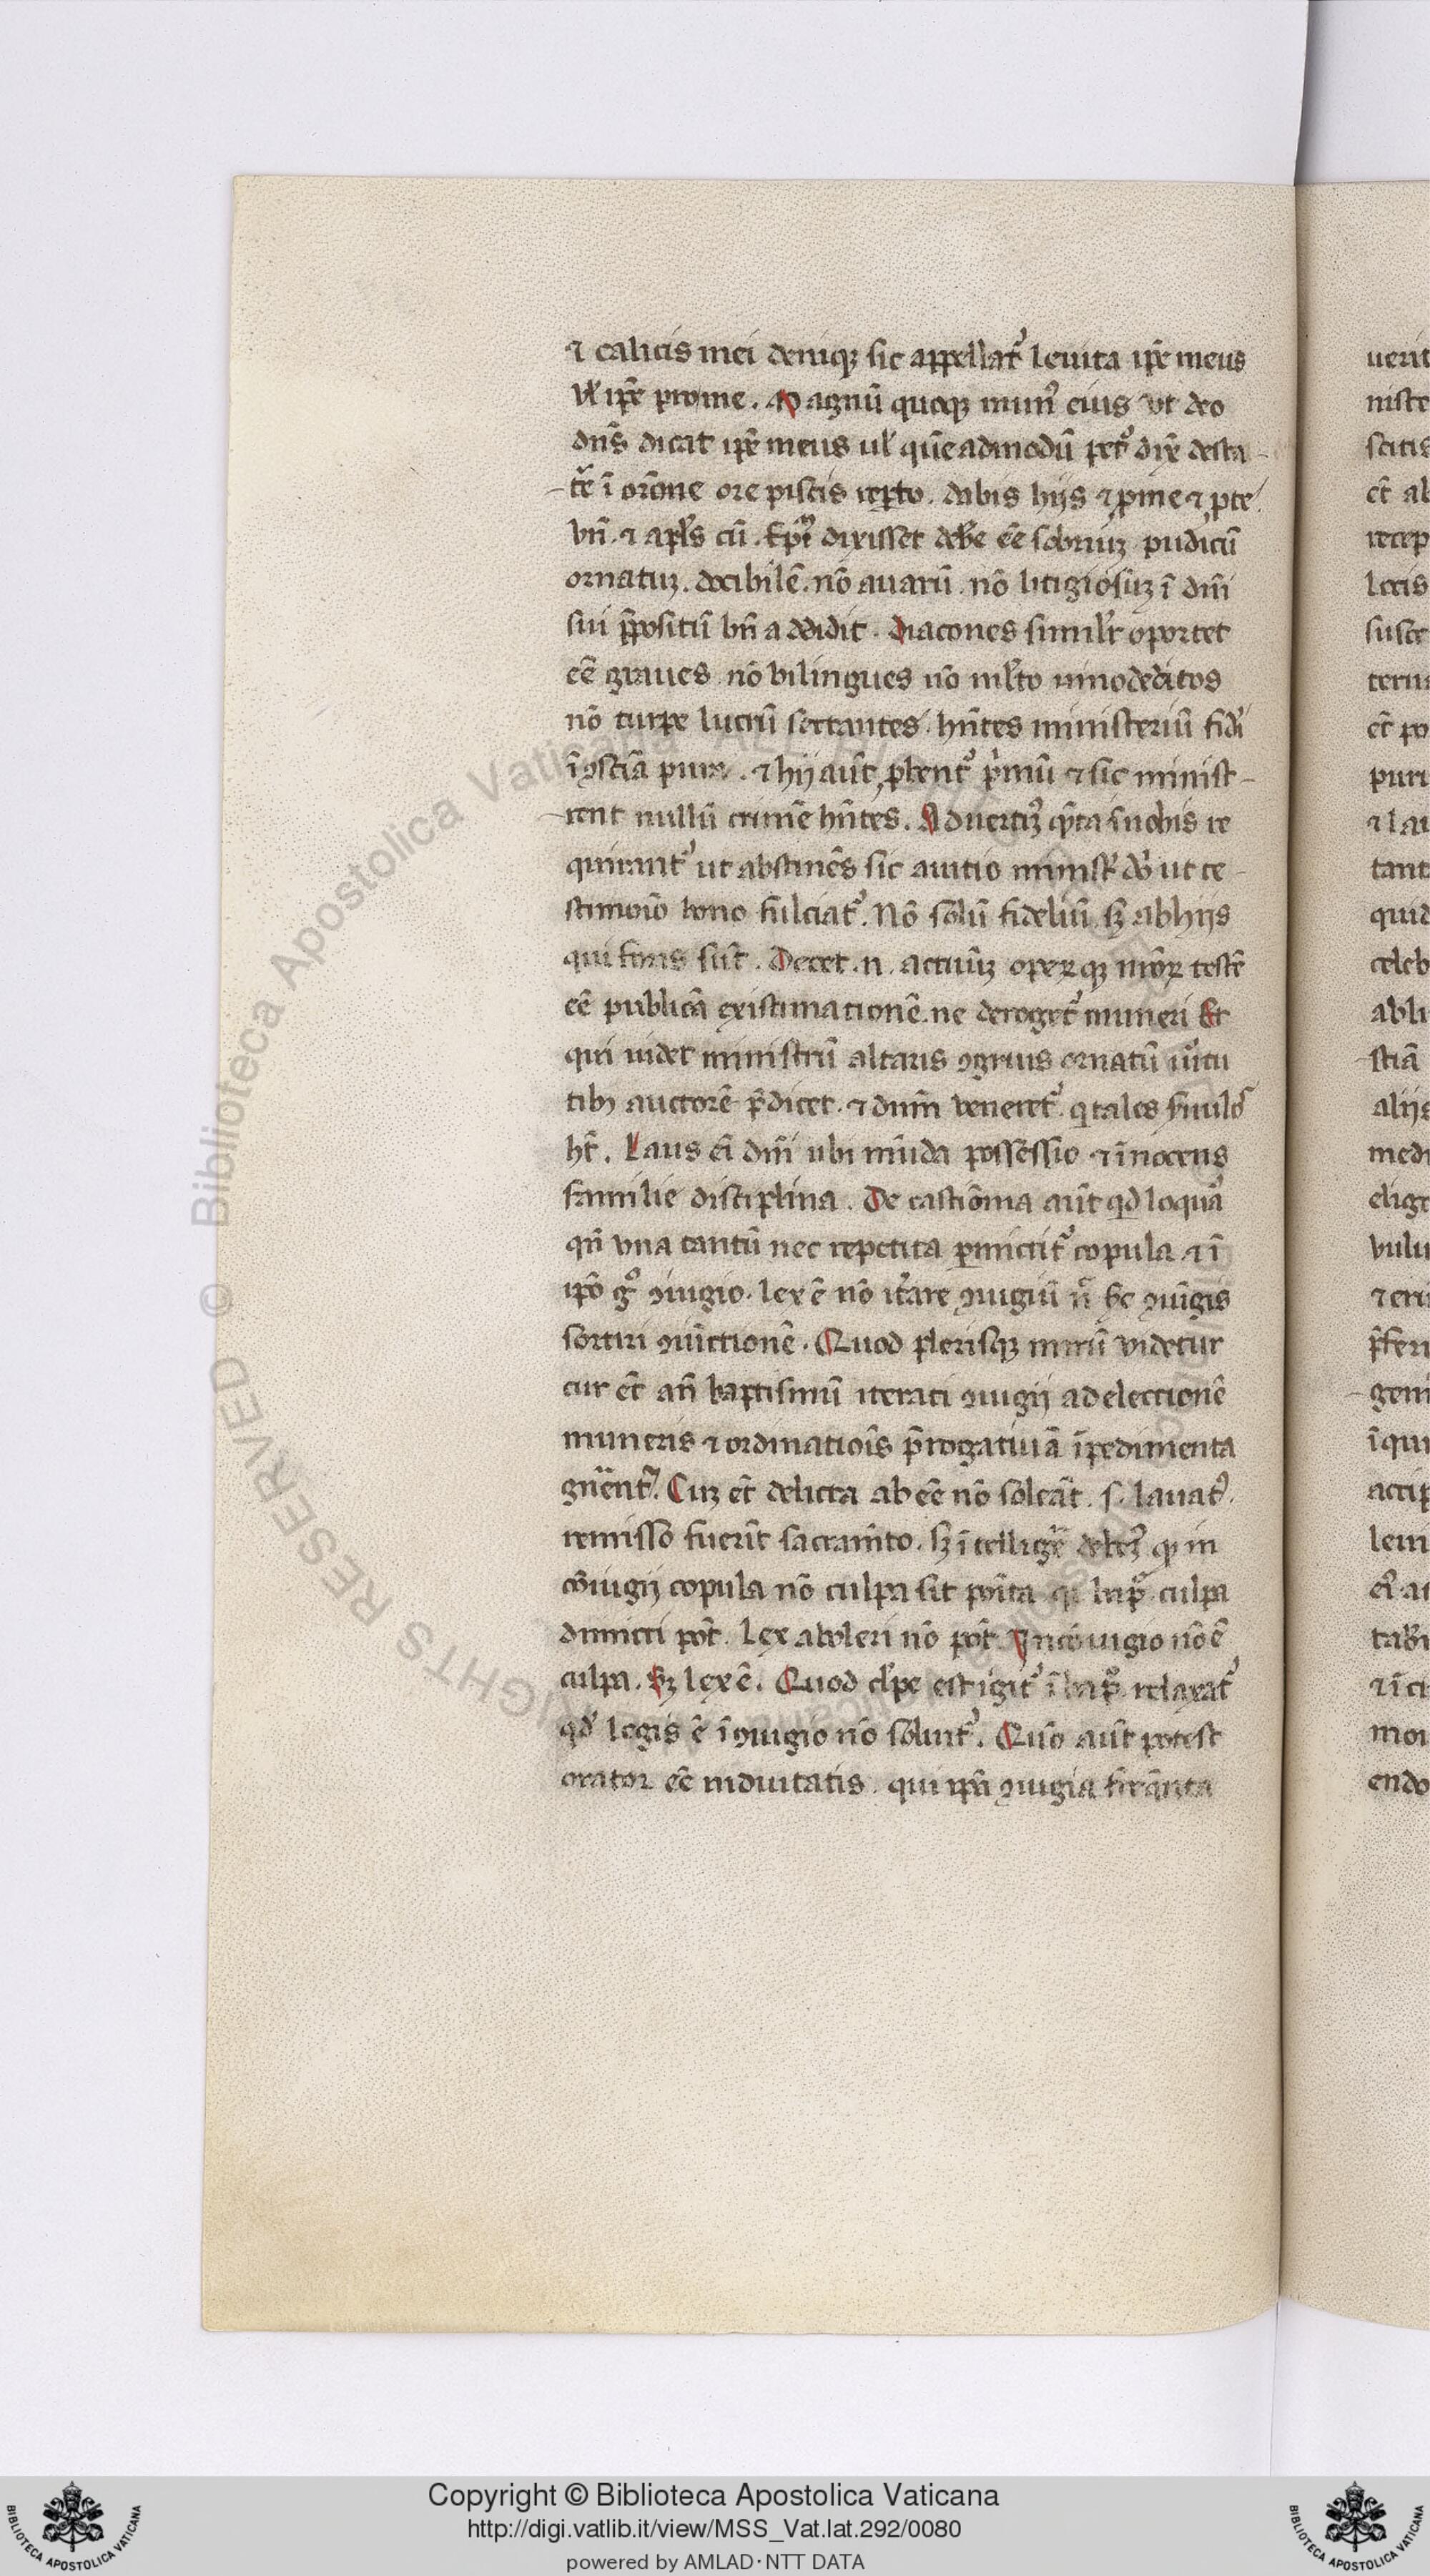 ⁊ calicis mei deniqꝫ sic appellat᷑ leuita ip̄e meus
Vl̓ ip̄e pro me . Magnū quoqꝫ mun᷒ eius vt deo
dn̄s dicat ip̄e meus ul̓ quēadmodū pet᷒ dix̄ de sta
t̄e ī or̄one ore piscis rep̄to . dabis hijs ⁊ p̱ me ⁊ p̱ te .
Vn̄ . ⁊ apl̓s cū . Ep̄m dixisset deb̓e eē sobriuꝫ pudicū
ornatuꝫ . docibilē . nō auarū . nō litigiosuꝫ ī dn̄i
sui p̄positū bn̄ addidit . Diacones simil̓r oportet
eē graues nō bilingues nō ml̓to uino deditos
nō turpe lucrū sectantes . hn̄tes ministeriū fid̓i
ī ꝯsciā pura . ⁊ hij aūt p̱bent᷑ p̓mū ⁊ sic minist
rent nullū crimē hn̄tes . Aduertim᷒ qn̄ta ī nobis re
quirant᷑ ut abstinēs sic a uitio minist̓ dn̄i ut te
stimoīo bono fulciat᷑ . Nō solū fideliū sꝫ ab hijs
qui foris sūt . Decet . n . actuūꝫ operꝝqꝫ nr̄oꝝ testē
eē publicā existimationē . ne deroget᷑ muneri Et
qui uidet ministrū altaris ꝯgruis ornatū uir̓tu
tibꝫ auctorē p̄dicet . ⁊ dn̄m veneret᷑ . q̱ tales s̓uulos
ht̄ . Laus ei̓ dn̄i ubi mūda possessio ⁊ īnocens
familie disciplina . De castiōnia aūt qd̄ loqua᷑
qn̄ vna tantū nec repetita p̱mictit᷑ copula . ⁊ ī
ip̄o g̊ ꝯiugio . lex ē nō it̓are ꝯiugiū n̄ sc̓ ꝯiūgis
sortiri ꝯiūctionē . Quod pleris̱qꝫ mirū videtur
cur et̄ an̄ baptismū iterati ꝯiugij ad electionē
muneris ⁊ ordinatiois̄ p̄rogatiuā īpedimenta
gn̄ent᷑ . Cuꝫ et̄ delicta ab eē nō soleāt . s . lauat᷒ .
remisso fuerīt sacramn̄to . sꝫ ītelliger̄ debem᷒ qꝫ in
cōiugij copula nō culpa sit poīta qi̓ bap̄ culpa
dimicti pōt . lex aboleri nō pōt . In cōiugio nō ē
culpa . Sꝫ lex ē . Quod cl̓pe est igit᷑ ī bap̄ relaxat᷑
qd̓ legis ē ī ꝯiugio nō soluit᷑ . Quō aūt potest
orator eē uiduitatis . qui ip̄a ꝯiugia